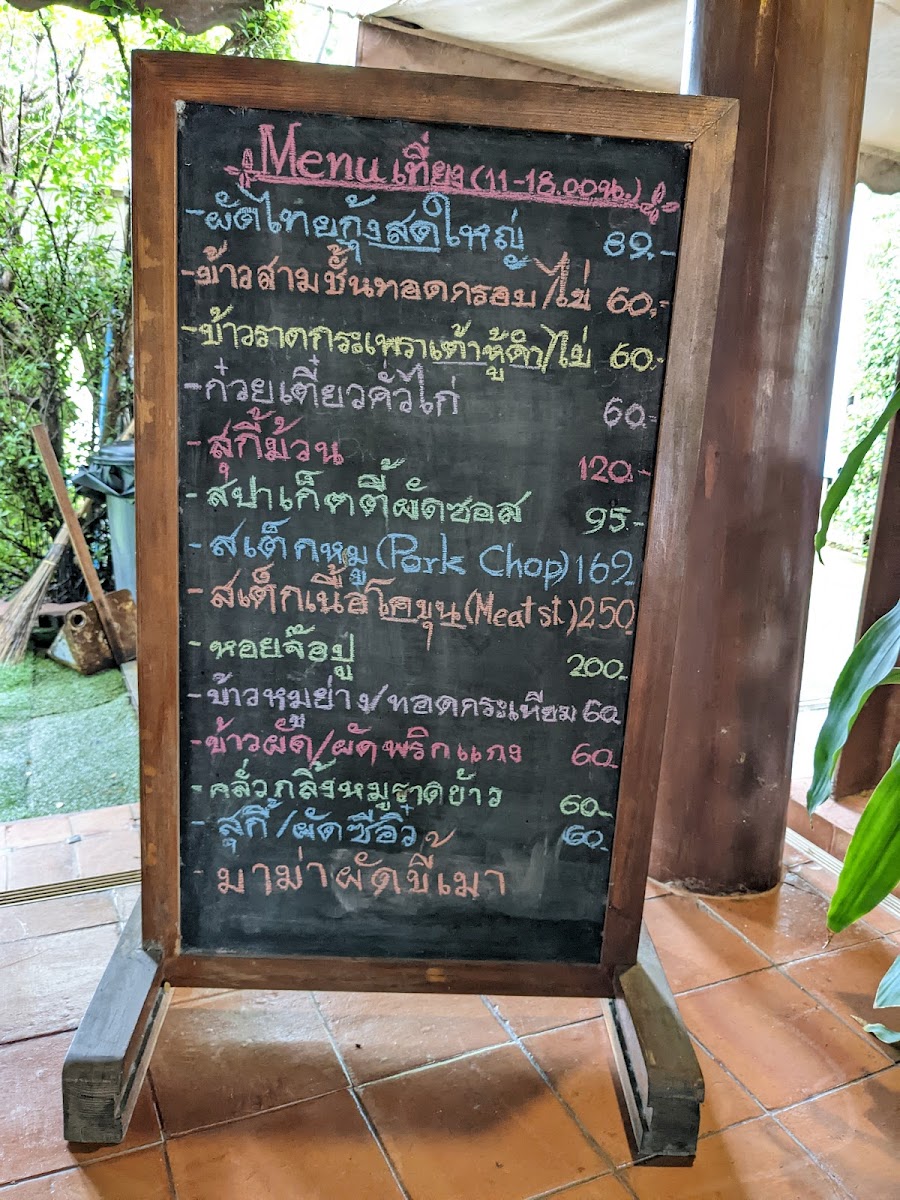 Menu เที่ยง (11-18.00น.)
-ผัดไทยกุ้งสดใหญ่ 89.-
-ข้าวสามชั้นทอดกรอบ/ไข่ 60.-
-ข้าวราดกระเพราเต้าหู้ดำ/ไข่ 60.-
-ก๋วยเตี๋ยวคั่วไก่ 60.-
-สุกี้ม้วน 120.-
-สปาเก็ตตี้ผัดซอส 95.-
-สเต็กหมู (Pork Chop) 169
-สเต็กเนื้อโคขุน (Meat st.) 250
-หอยจ๊อปู 200.
-ข้าวหมูย่าง/ทอดกระเทียม 60
-ข้าวผัด/ผัดพริกแกง 60.
-คลั่วกลิ้งหมูราดข้าว 60.
-สุกี้/ผัดซีอิ๋ว 60.
-มาม่าผัดขี้เมา